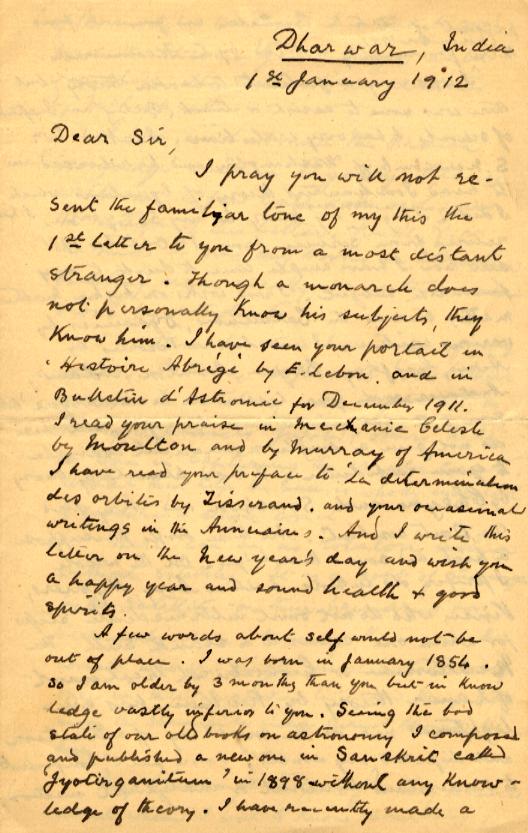 Dharwar, India
1st January 1912
Dear Sir,
I pray you will not re-
sent the familiar tone of my this the
1st letter to you from a most distant
stranger. Though a monarch does
not personally know his subjects, they
know him. I have seen your portait in
'Histoire Abrégé by E. Lebon. and in
Bulletin d'Astromie for December 1911.
I read your praise in Mechanic Celeste
by Moulton and by Murray of America
I have read your preface to 'La determination
des orbitis by Tisserand. and your occasional
writings in the Annuaires. And I write this
letter on the New year's day and wish you
a happy year and sound health & good
spirits.
A few words about self would not be
out of place. I was born in January 1854.
So I am older by 3 months than you but in know
ledge vastly inferior to you. Seeing the bad
state of our old books on astronomy I composed
and published a new one in Sanskrit called
'Jyotirganitum' in 1898 without any know-
ledge of theory. I have recently made a